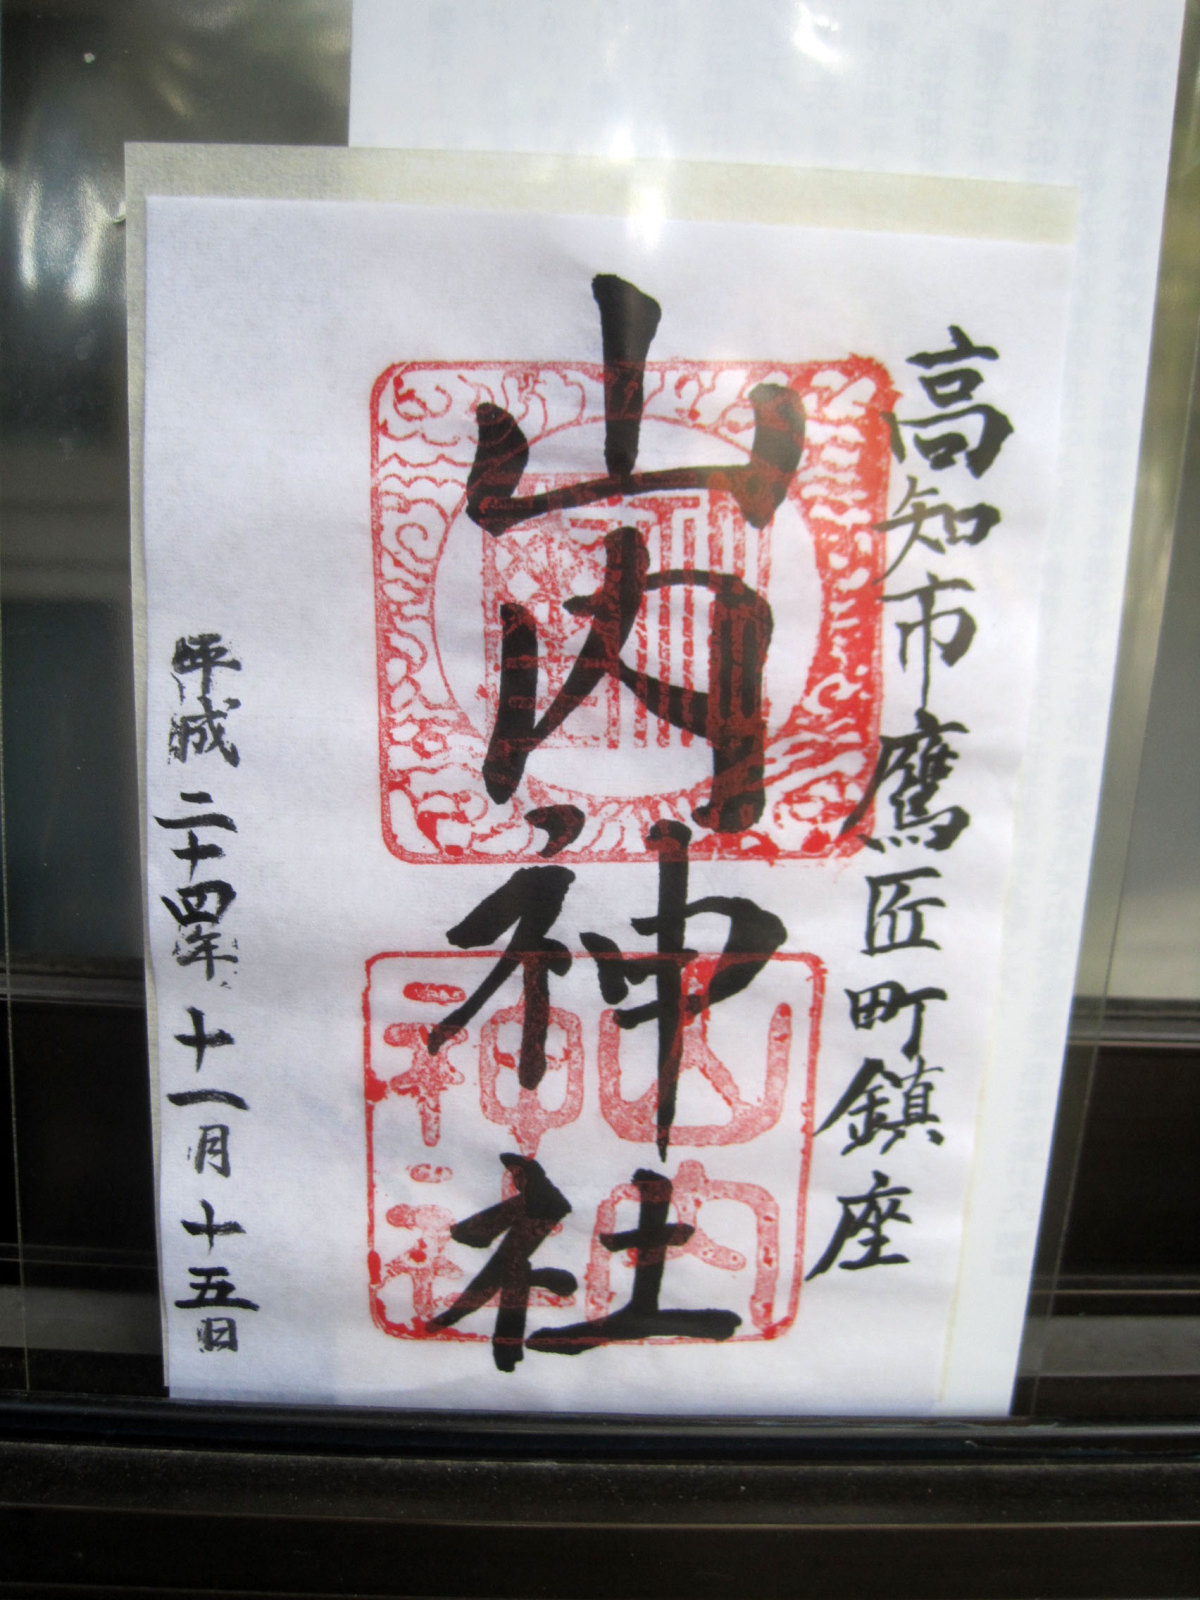 高知市鷹匠町鎮座
山内神社
山内
神社
平成二十四年十一月十五日